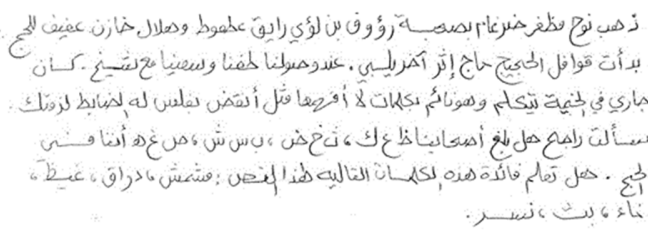 ذهب نوح مظفر ضرغام بصحبة رؤوف بن لؤي رايق عطعوط وهلال خازن عفيف للحج.
بدأت قوافل الحجيج حاج إثر آخر يلبي. عند وصولنا طفنا وسعينا مع شيخ. كان
جاري في الخيمة يتكلم وهو نائم بكلمات لا أفهمها مثل أنقض بغلس له الضابط لزمتك.
سألت راجح هل بلغ أصحابنا ظ ع ك، ث خ ض، ب س ش، ص غ ه أننا في
الحج. هل تعلم فائدة هذه الكلمات التالية لهذا النص: مشمش، دراق، غيظ،
ناء، بث، نسر.